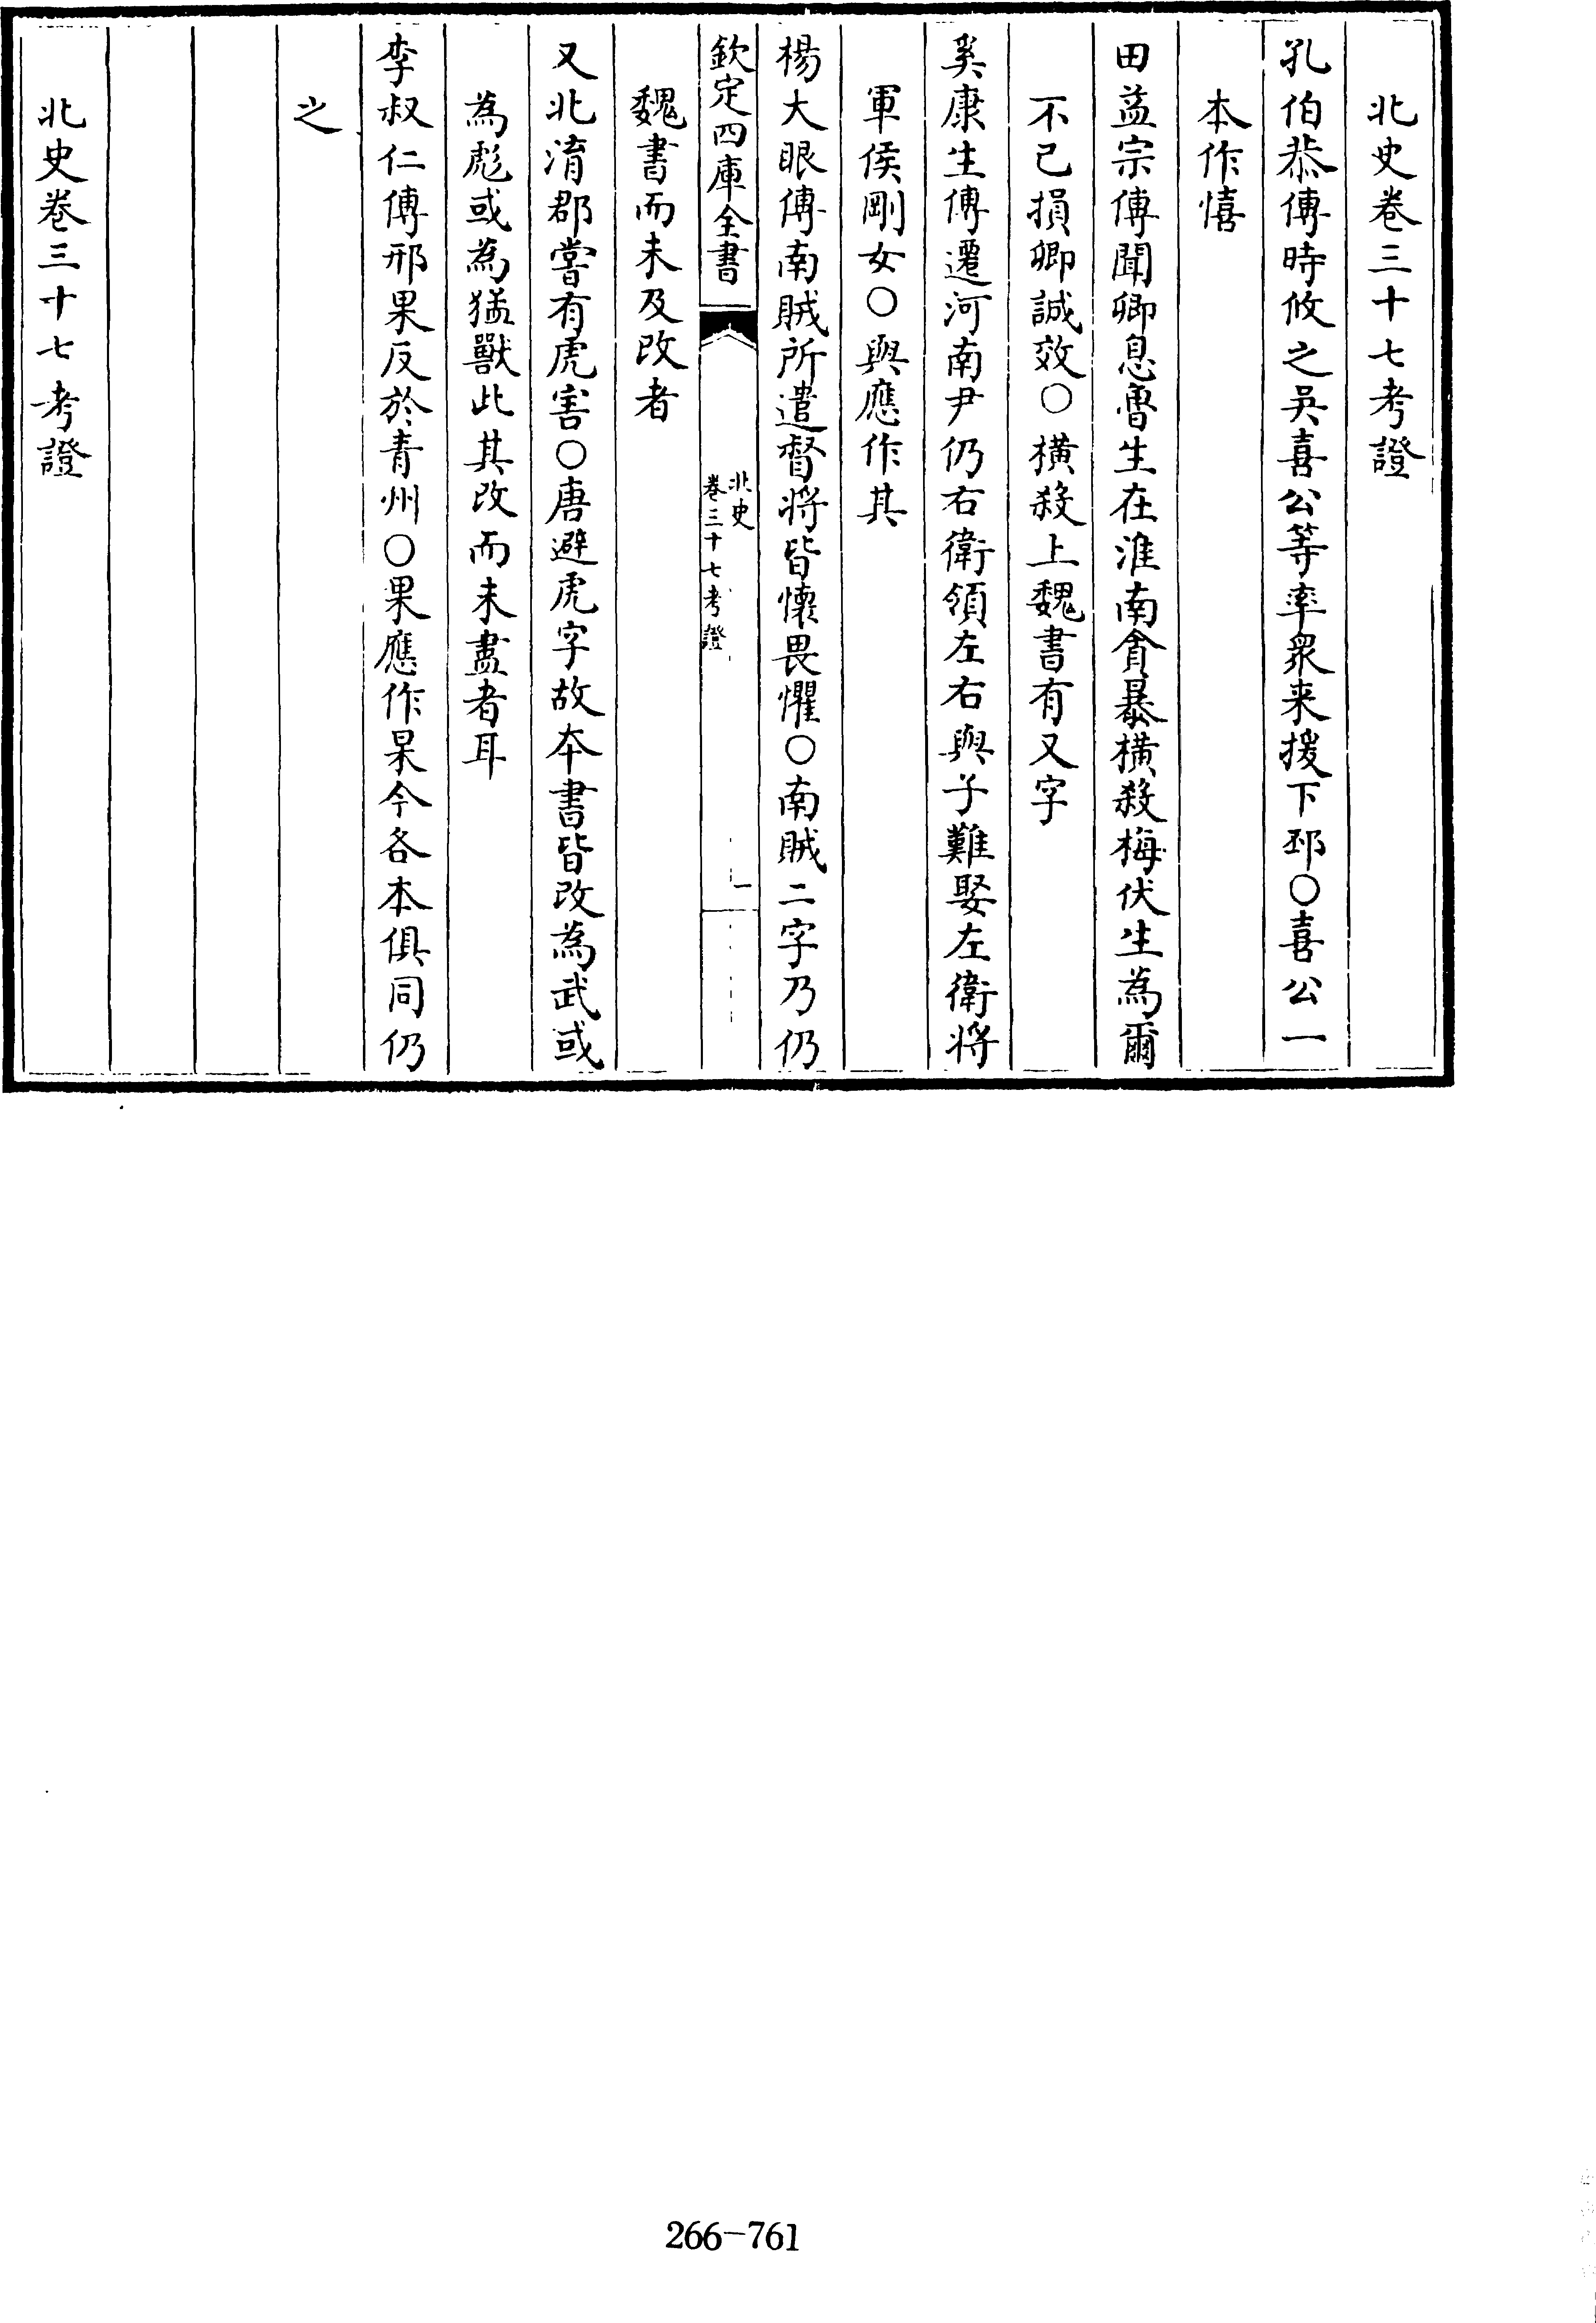 北史卷三十七考證
孔伯恭傳時攸之吳喜公等率衆来援下邳○喜公一
本作憘
田益宗傳聞卿息魯生在淮南貪暴橫殺梅伏生為爾
不已損卿誠效○橫殺上魏書有又字
奚康生傳遷河南尹仍右衛領左右與子難娶左衛將
軍侯剛女○與應作其
楊大眼傳南賊所遣督將皆懷畏懼○南賊二字乃仍
欽定四庫全書
北史
卷三十七考證
一
魏書而未及改者
又北淯郡嘗有虎害○唐避虎字故本書皆改為武或
為彪或為猛獸此其改而未盡者耳
李叔仁傳邢果反於青州○果應作杲今各本俱同仍
之
北史卷三十七考證
266-761